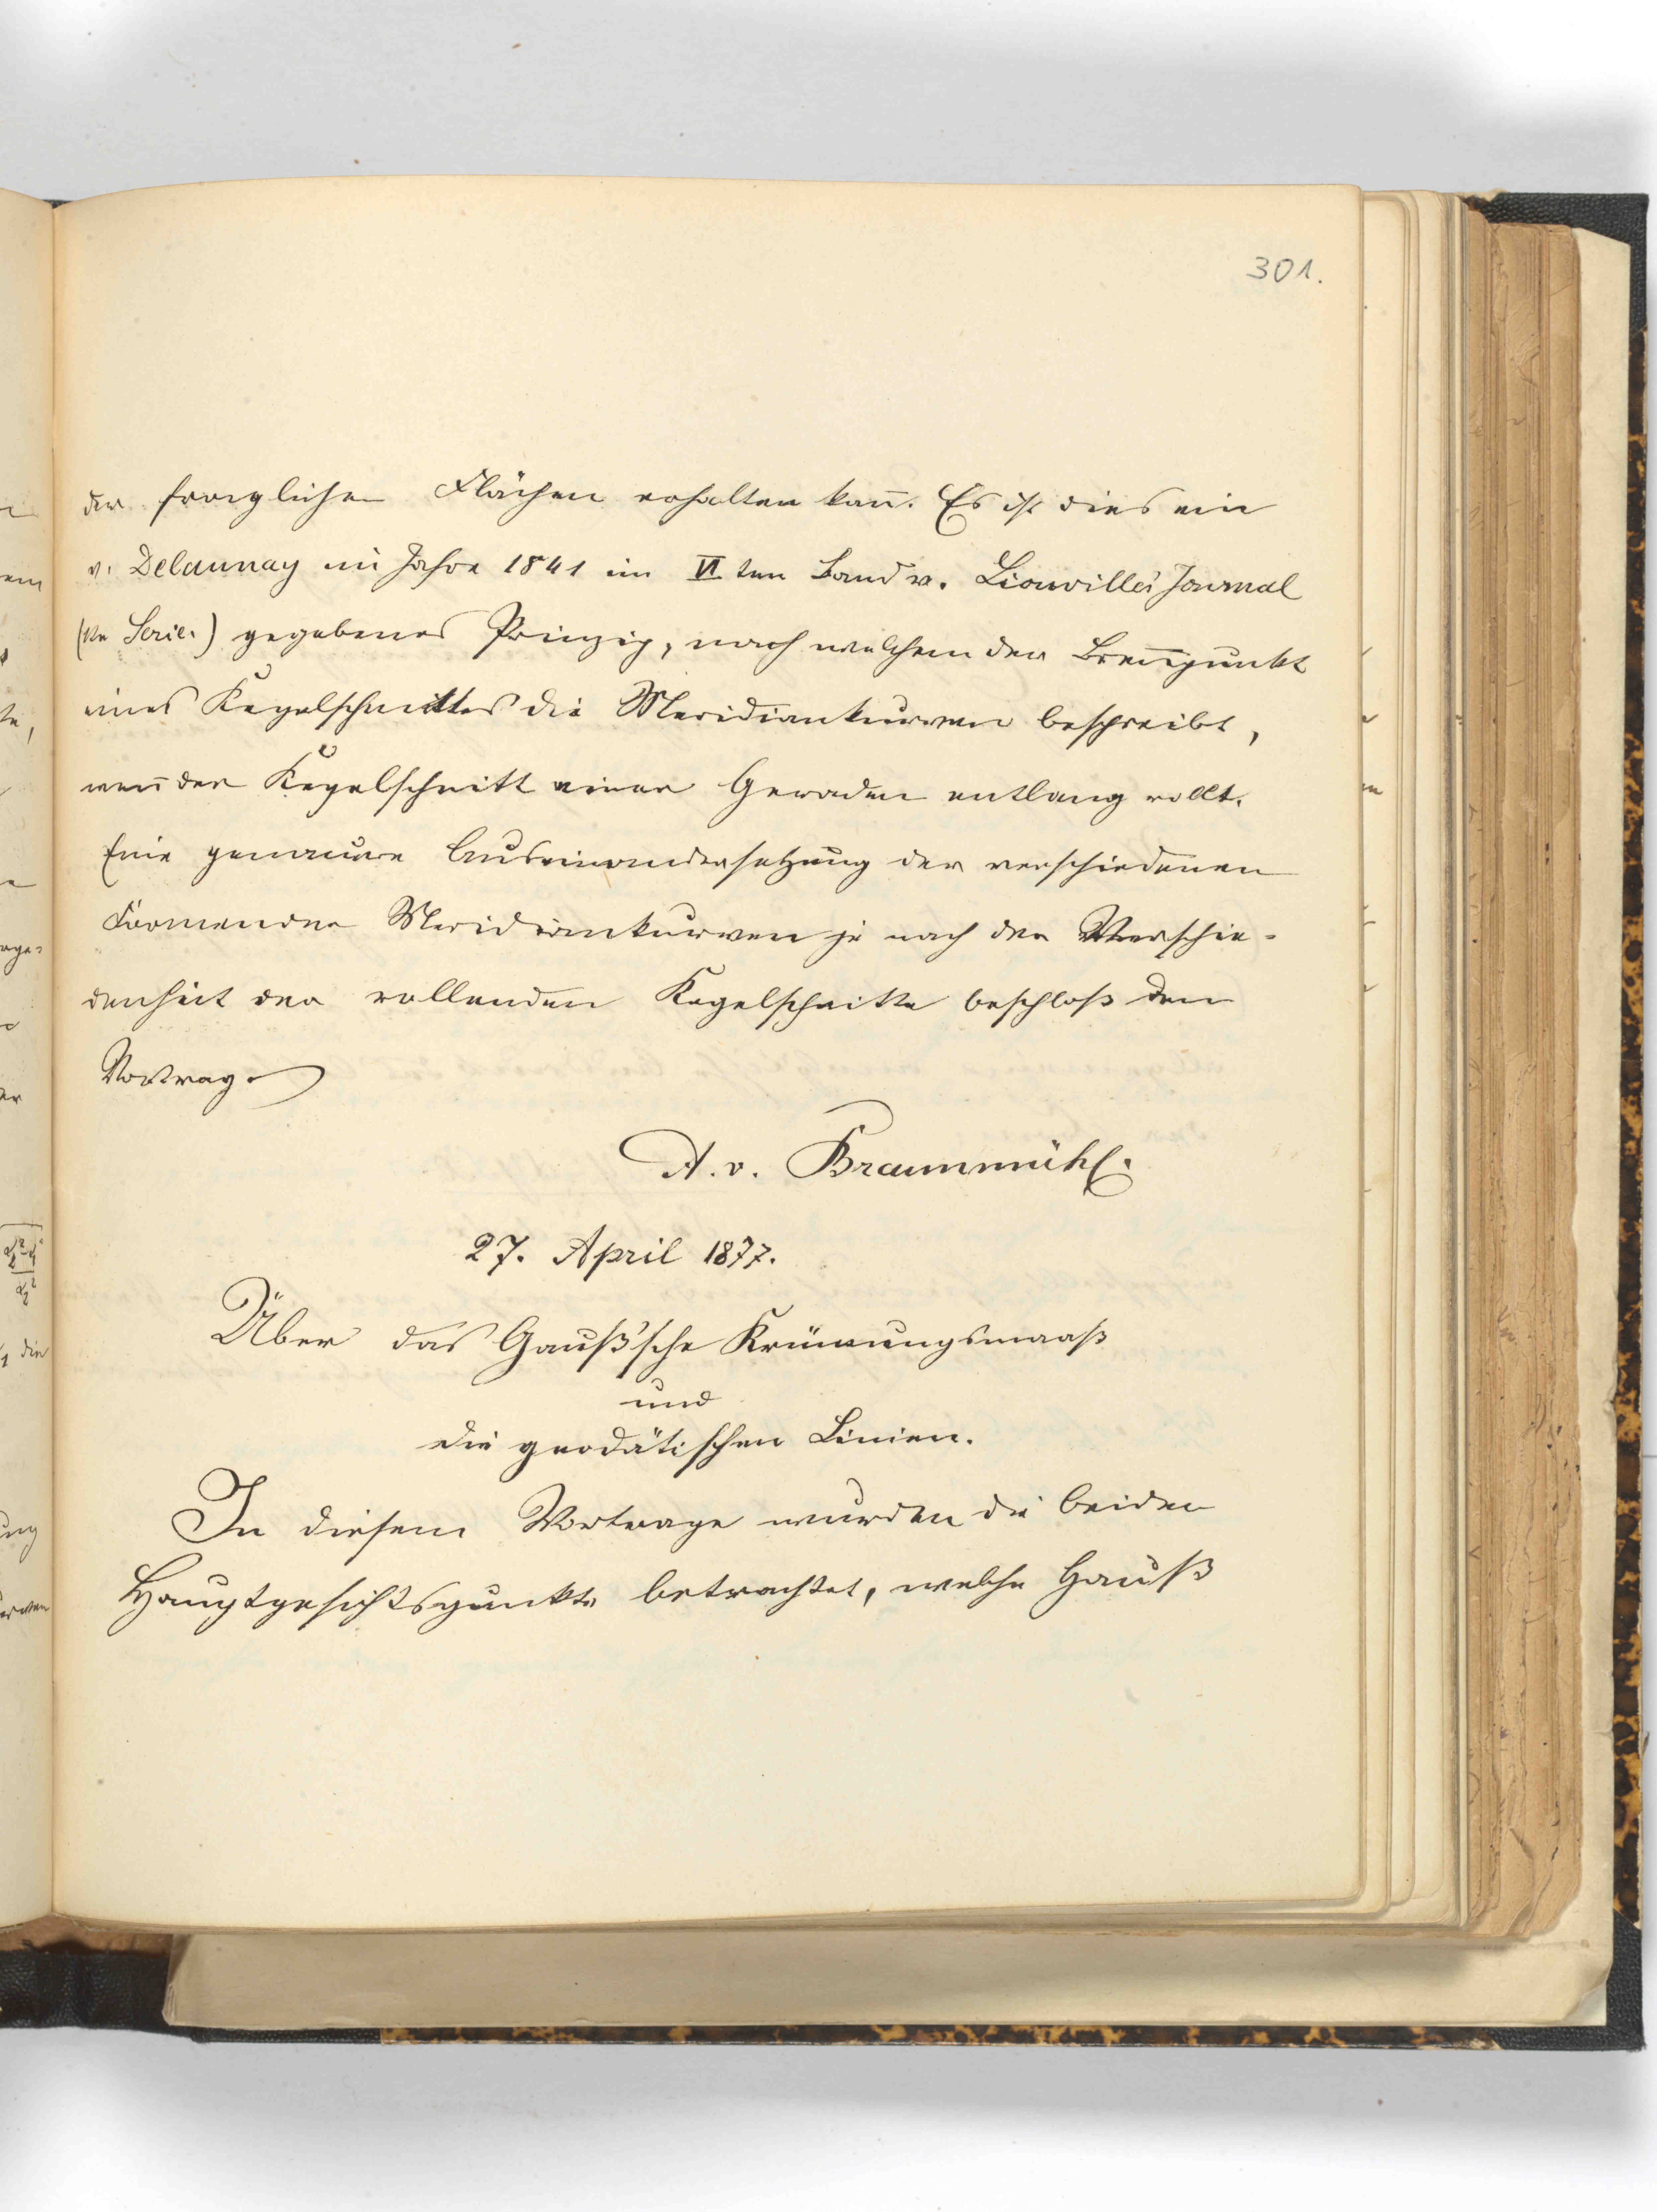 301.
der fraglichen Flächen erhalten kan̄. Es ist dies ein
v. Delaunay im Jahre 1841 im VI ten Band v. Liouville's Journal
(1re Serie.) gegebenes Prinzip, nach welchem der Bren̄punkt
eines Kegelschnittes die Meridiankurven beschreibt,
wen̄ der Kegelschnitt einer Geraden entlang rollt.
Eine genauere Auseinandersetzung der verschiedenen
Formen der Meridiankurven je nach der Verschie-
denheit der rollenden Kegelschnitte beschloß den
Vortrag.
A. v. Braunmühl.
27. April 1877.
Über das Gauß'sche Krüm̄ungsmaaß
und
die geodätischen Linien.
In diesem Vortrage wurden die beiden
Hauptgesichtspunkte betrachtet, welche Gauß